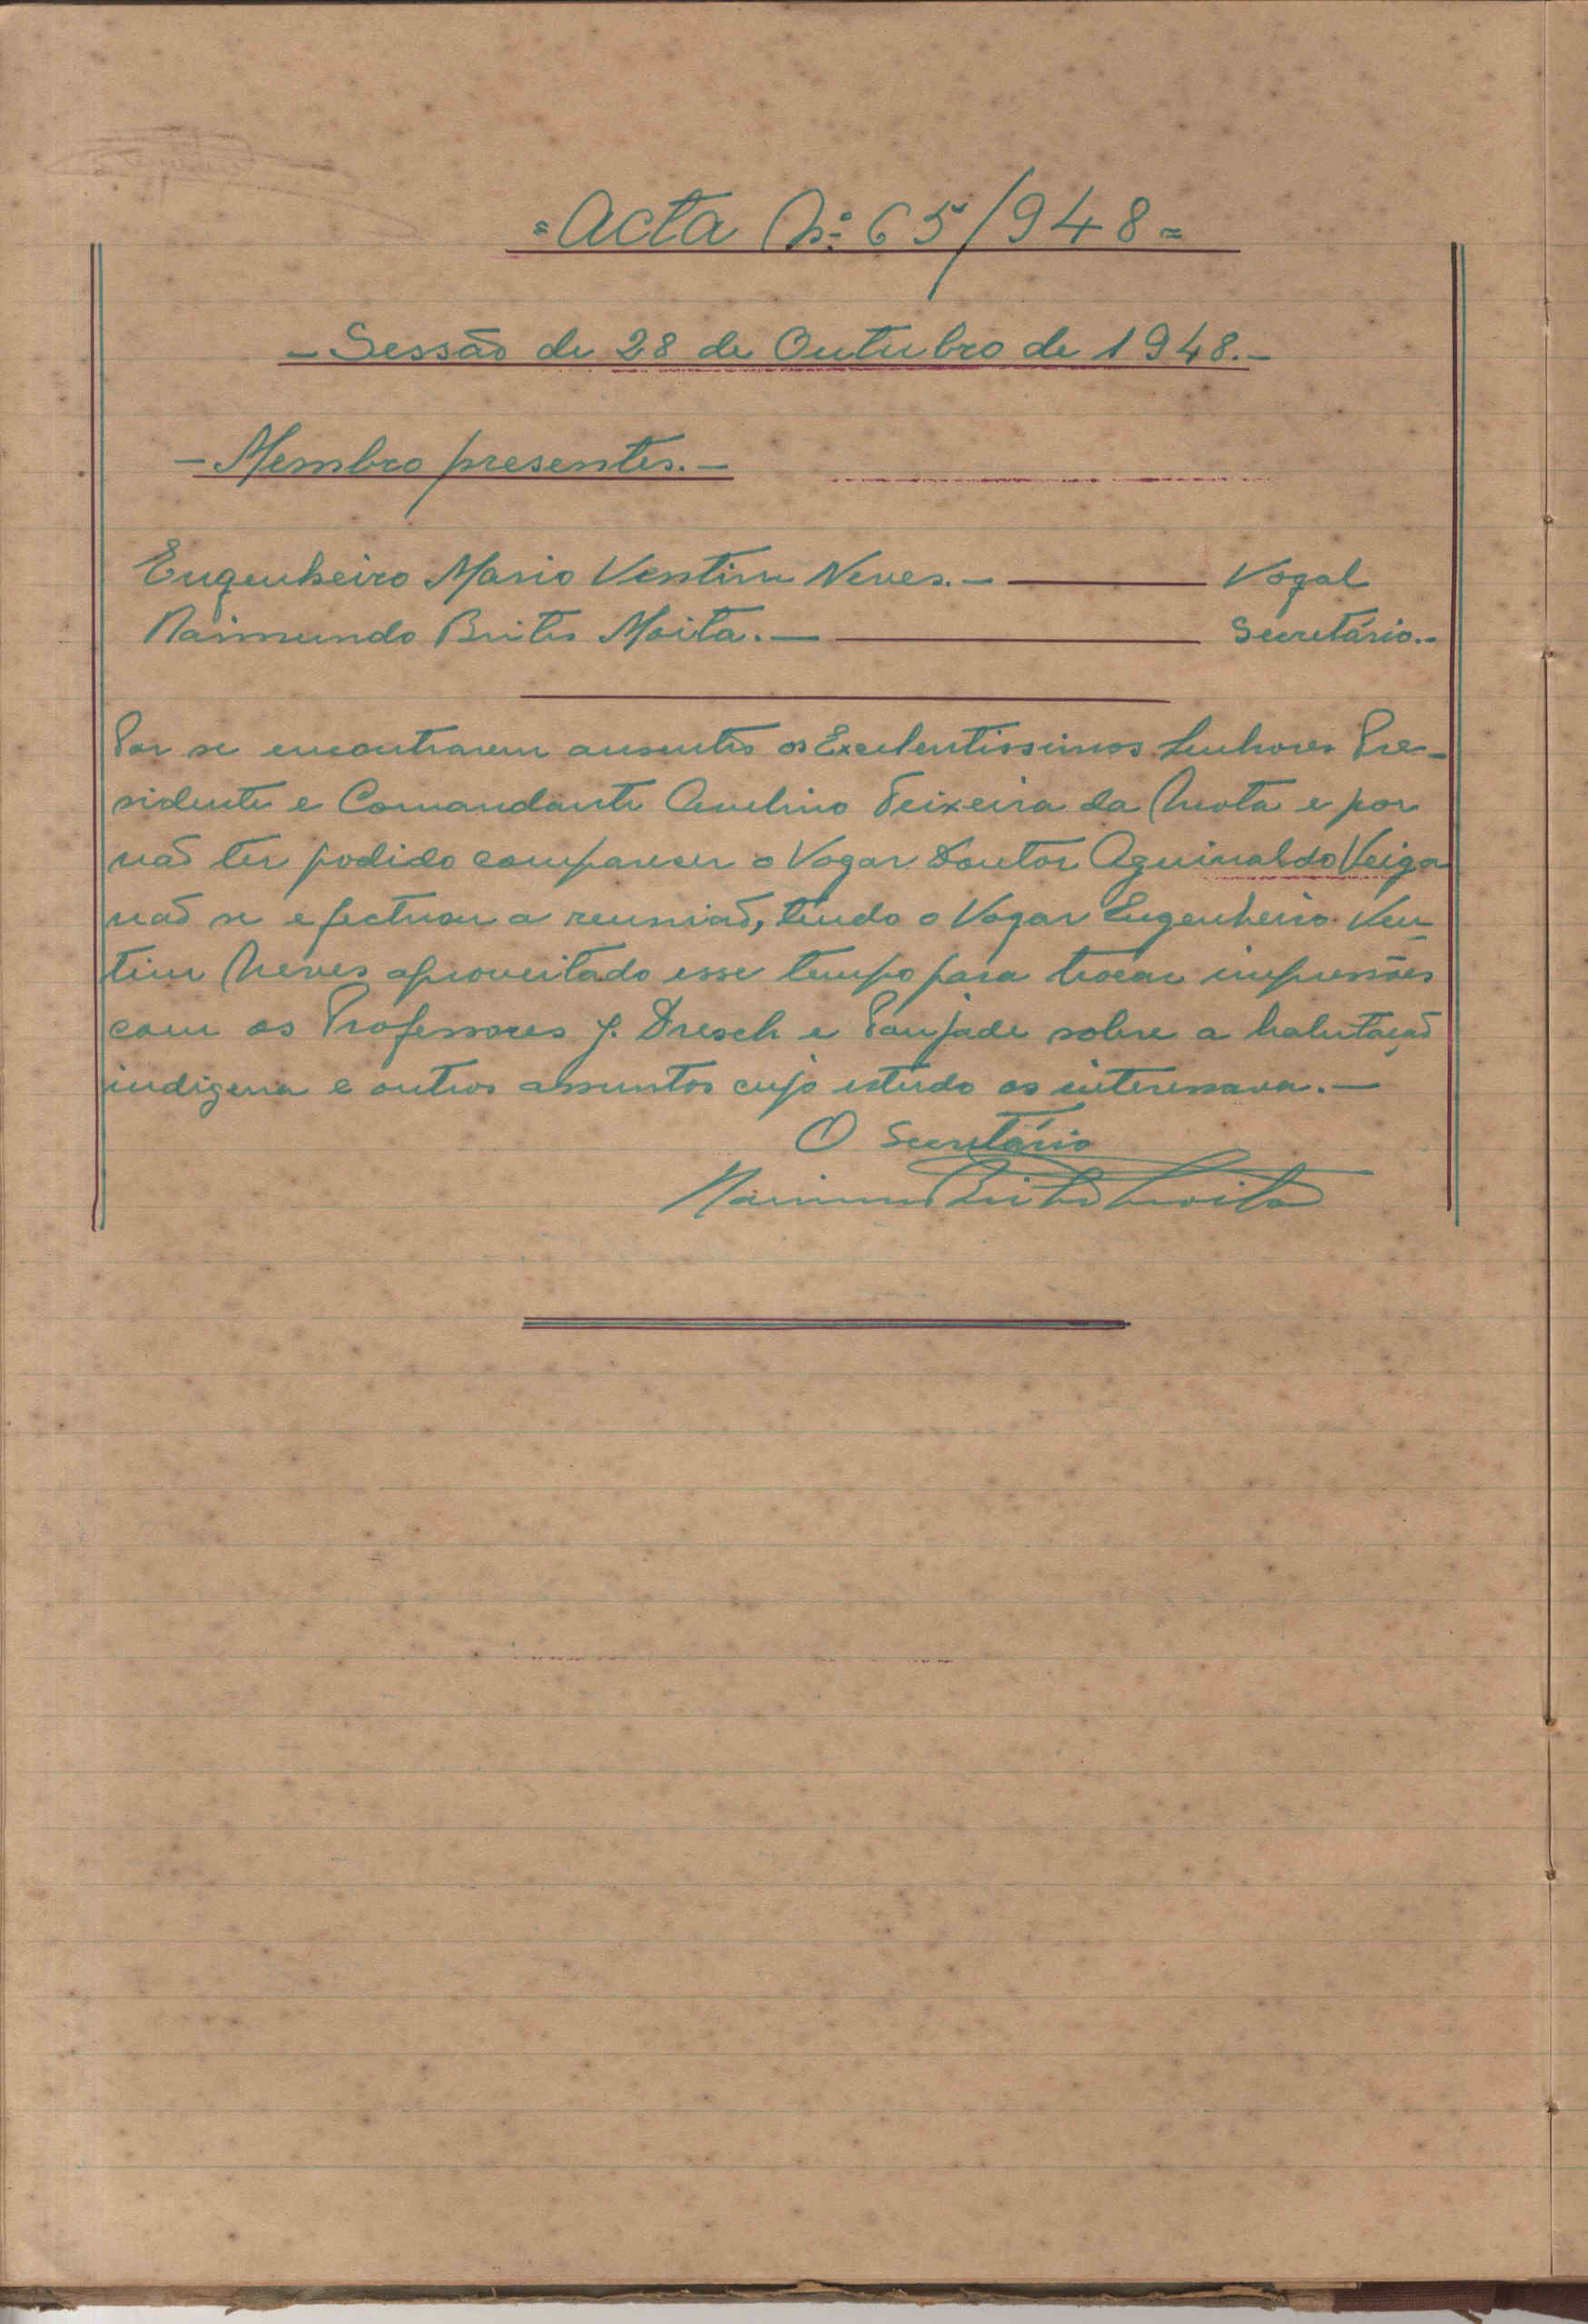 = Acta Nº 65/948 =
- Sessão de 28 de Outubro de 1948. -
- Membro presentes. -
Engenheiro Mario Ventim Neves. - Vogal
Raimundo Brites Moita. - Secretário. -
Por se encontrarem ausentes os Excelentissimos Senhores Pre-
sidente e Comandante Avelino Teixeira da Mota e por
não ter podido comparecer o Vogar Doutor Aguinaldo Veiga
não se efectuou a reunião, tendo o Vogar Engenheiro Ven-
tim Neves aproveitado esse tempo para trocar impressões
com os Professores J. Dresch e Poujade sobre a habitação
indigena e outros assuntos cujo estudo os interessava. -
O Secretário
Raimundo Brites Moita